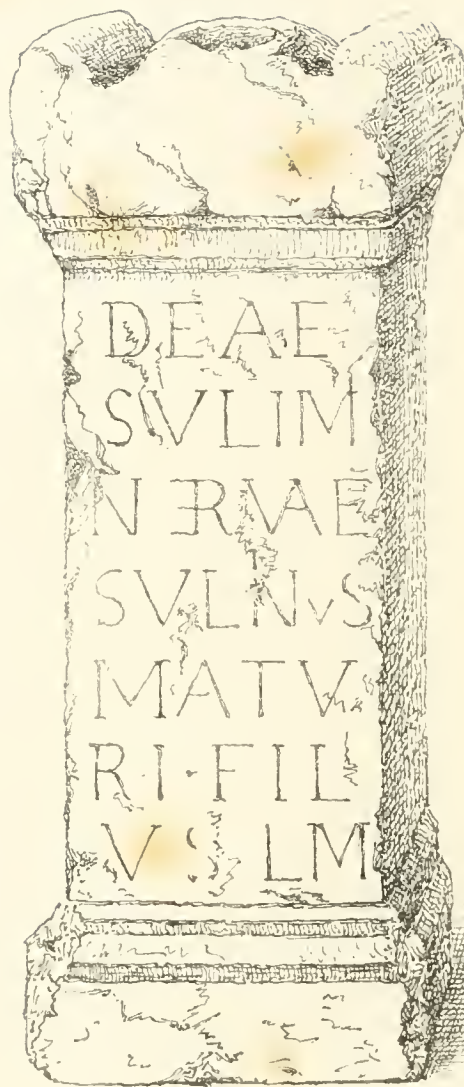 DEAE
SVLIM
NERVAE
SVLINVS
MATV
RI·FIL
VSLM